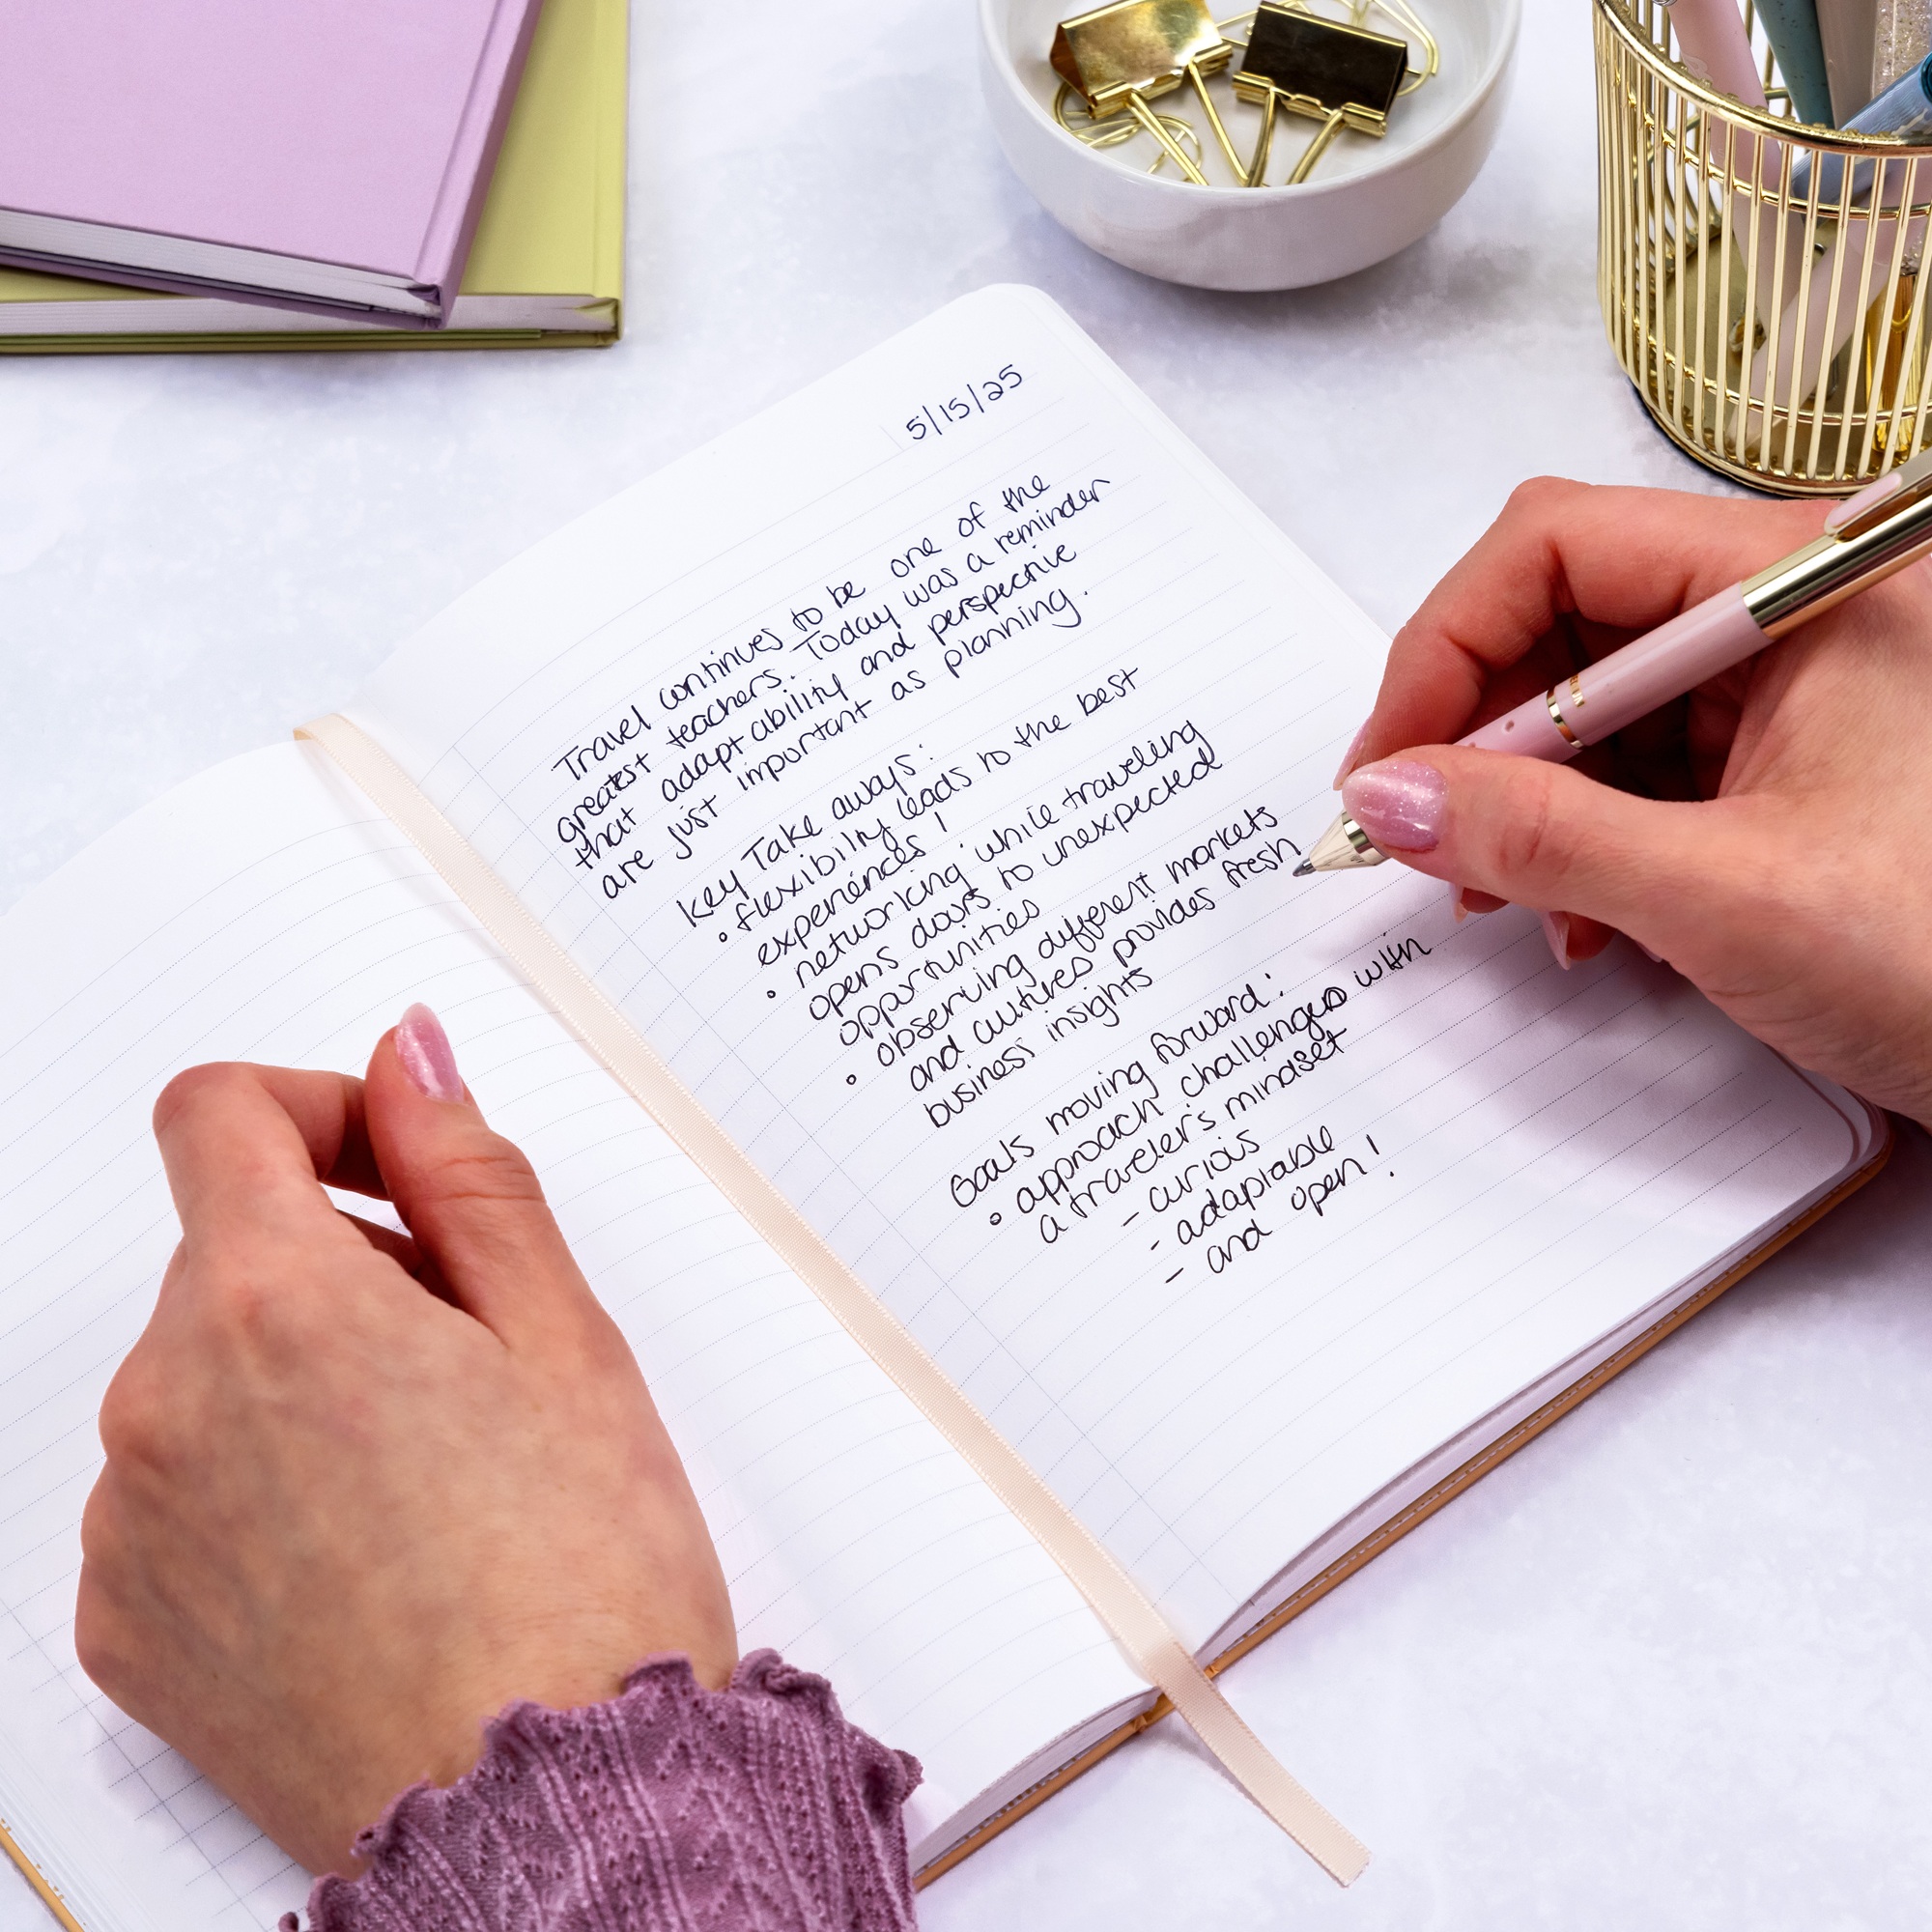 5/15/25
Travel continues to be one of the
greatest teachers. Today was a reminder
that adaptability and perspective
are just important as planning.
Key Take aways:
• flexibility leads to the best
experiences!
• networking while traveling
opens doors to unexpected
opportunities
• observing different markets
and cultures provides fresh
business insights
Goals moving forward:
• approach challenges with
a traveler's mindset
- curious
- adaptable
- and open!